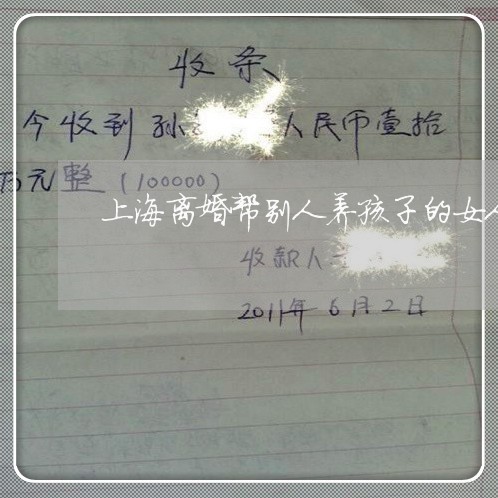 收条
今收到孙 人民币壹拾
万元整（100000）
上海离婚帮别人养孩子的女人
收款人
2011年6月2日